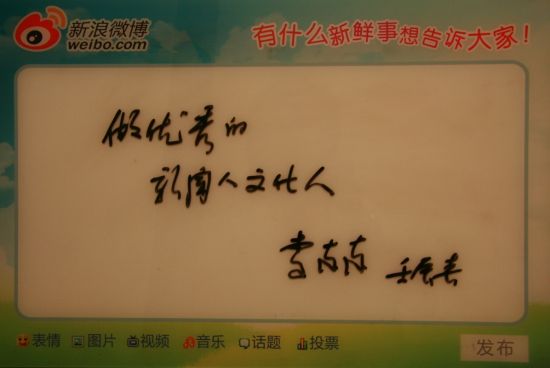 新浪微博
weibo.com
有什么新鲜事想告诉大家！
做优秀的
新闻人文化人
壬辰春
表情 图片 视频 音乐 话题 投票
发布